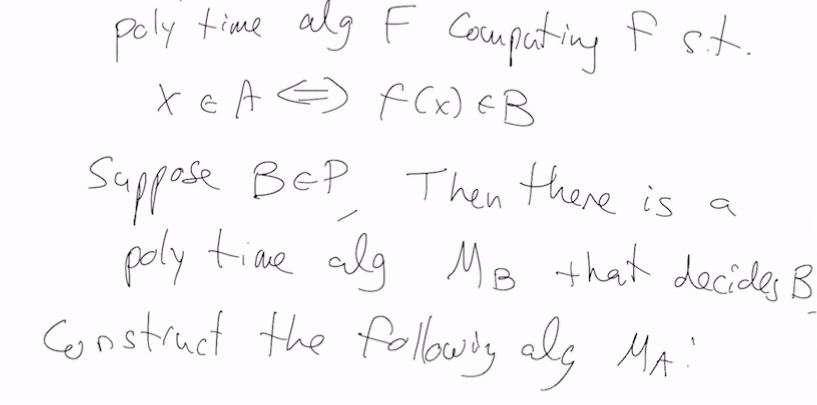 poly time alg F Computing f s.t.
x ∈ A ⇔ f(x) ∈ B
Suppose B∈P, Then there is a
poly time alg M_B that decides B.
Construct the following alg M_A: